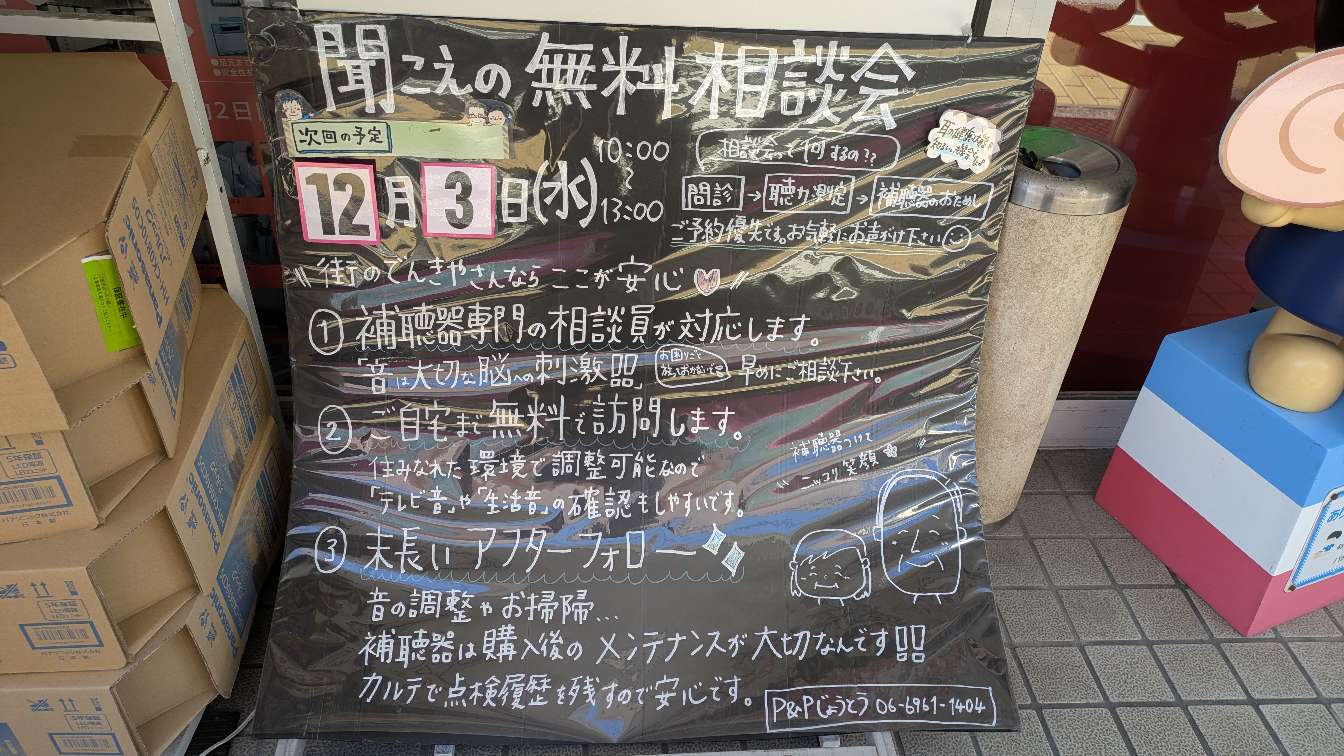 聞こえの無料相談会
次回の予定
12月3日(水)
10:00
~
13:00
相談会って何するの??
問診→聴力測定→補聴器のおためし
ご予約優先です。お気軽にお声がけ下さい
街のでんきやさんならここが安心
① 補聴器専門の相談員が対応します。
「音は大切な脳への刺激器」
お困りごと
早めにご相談下さい。
② ご自宅まで無料で訪問します。
住みなれた環境で調整可能なので
「テレビ音」や「生活音」の確認もしやすいです。
補聴器つけて
ニッコリ笑顔
③ 末長いアフターフォロー
音の調整やお掃除...
補聴器は購入後のメンテナンスが大切なんです!!
カルテで点検履歴を残すので安心です。
P&Pじょうとう 06-6961-1404
Panasonic
Panasonic